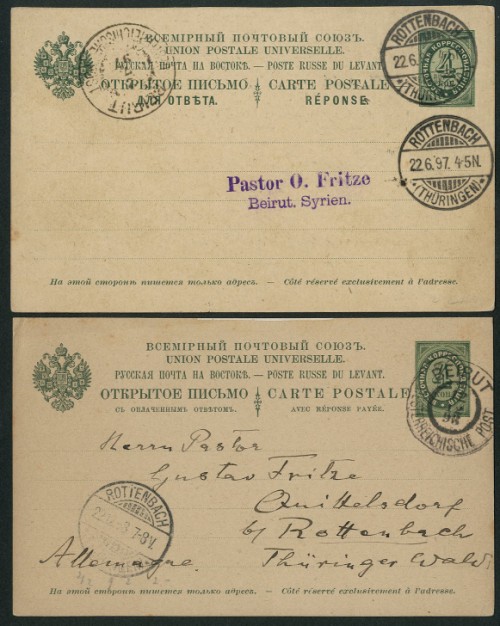 ВСЕМІРНЫЙ ПОЧТОВЫЙ СОЮЗЪ.
UNION POSTALE UNIVERSELLE.
РУССКАЯ ПОЧТА НА ВОСТОКѢ. — POSTE RUSSE DU LEVANT.
ОТКРЫТОЕ ПИСЬМО CARTE POSTALE
ДЛЯ ОТВѢТА. RÉPONSE
ROTTENBACH
22.6.
(THÜRINGEN)
ROTTENBACH
22.6.97. 4-5N.
(THÜRINGEN)
Pastor O. Fritze
Beirut. Syrien.
На этой сторонѣ пишется только адресъ. — Côté réservé exclusivement à l'adresse.
ВСЕМІРНЫЙ ПОЧТОВЫЙ СОЮЗЪ.
UNION POSTALE UNIVERSELLE.
РУССКАЯ ПОЧТА НА ВОСТОКѢ. — POSTE RUSSE DU LEVANT.
ОТКРЫТОЕ ПИСЬМО CARTE POSTALE
СЪ ОПЛАЧЕННЫМЪ ОТВѢТОМЪ. AVEC RÉPONSE PAYÉE.
BEIRUT
OESTERREICHISCHE POST
Herrn Pastor
Gustav Fritze
Quittelsdorf
b/ Rottenbach
Allemagne. Thüringer Wald
ROTTENBACH
7-8V.
На этой сторонѣ пишется только адресъ. — Côté réservé exclusivement à l'adresse.